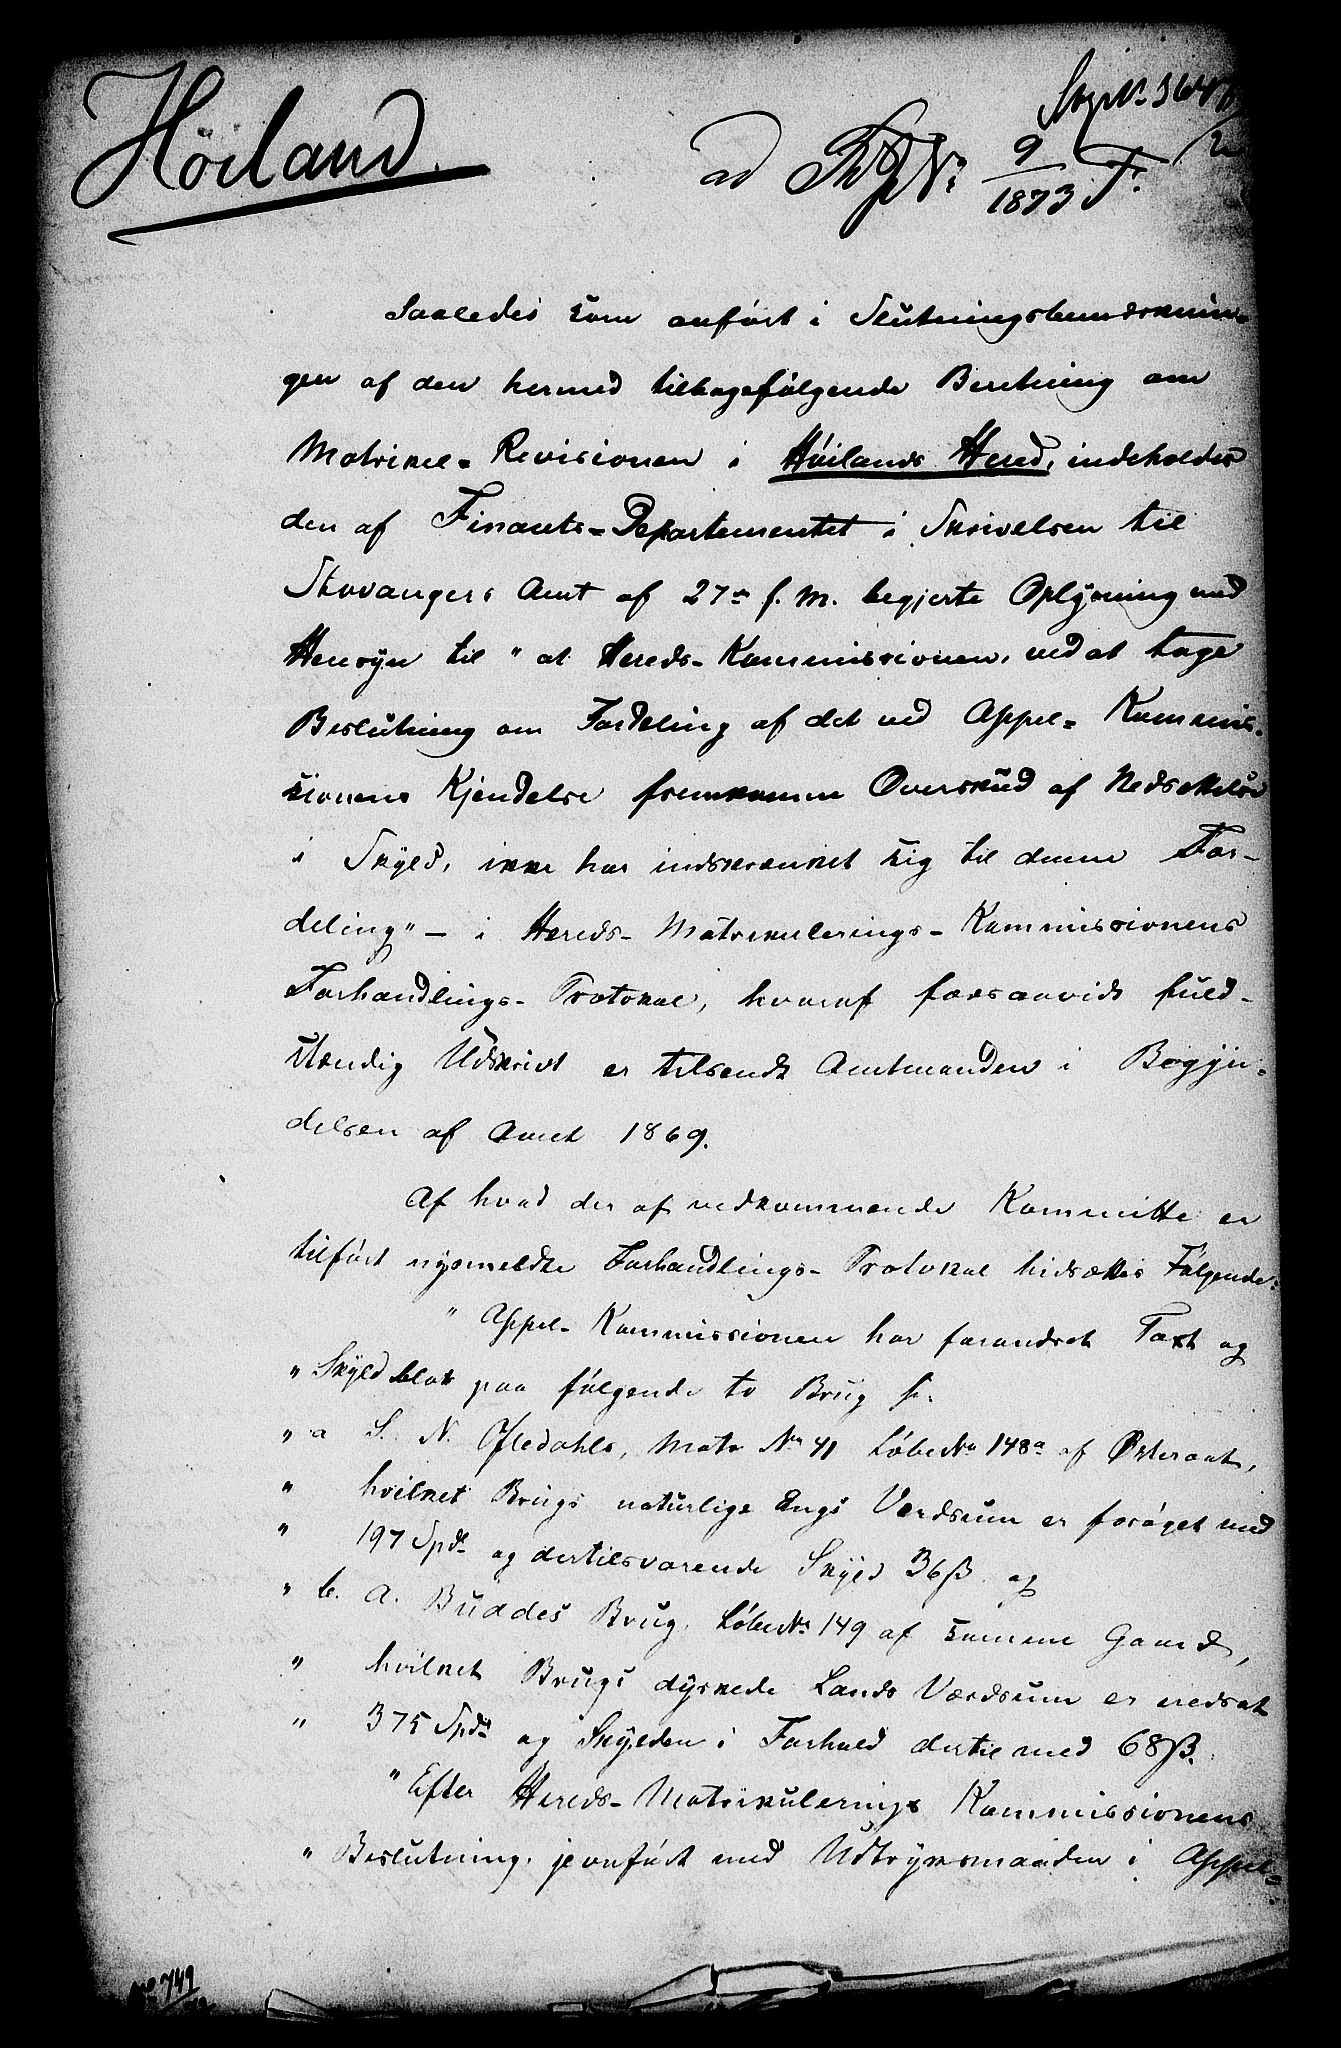 Höiland.
ad
9
1873 F.
Saaledes som anført i Slutningsbemærknin-
gen af den hermed tilbagefølgende Beretning om
Matrikel-Revisionen i Høilands Hered, indeholdes
den af Finants-Departementet i Skrivelsen til
Stavangers Amt af 27de f. M. begjerte Oplysning med
Hensyn til "at Hereds-Kommissionen, ved at tage
Beslutning om Fordeling af det ved Appel-Kommis-
sionens Kjendelse fremkomne Overskud af Nedsættelse
i Skyld, ikke har indskrænket sig til denne For-
deling" – i Hereds-Matrikulerings-Kommissionens
Forhandlings-Protokol, hvoraf forsaavidt fuld-
stændig Udskrivt er tilsendt Amtmanden i Begyn-
delsen af Aaret 1869.
Af hvad der af vedkommende Kommitte er
tilført nysmeldte Forhandlings-Protokol hidsættes Følgende:
" Appel-Kommissionen har forandret Taxt og
" Skyld blot paa følgende to Brug
" a S. N. Ofledahls, Matr No 41 Løbe No 148a af Østeraat,
" hvilket Brugs naturlige Engs Værdsum er forøget med
" 197 Spd. og dertilsvarende Skyld 36 ß og
" b. A. Buddes Brug, Løbe No 149 af samme Gaard,
" hvilket Brugs dyrkede Lands Værdsum er nedsat
" 375 Spd. og Skylden i Forhold dertil med 68 ß.
" Efter Hereds-Matrikulerings Kommissionens
" Beslutning, jevnført med Udtryksmaaden i Appel-
749